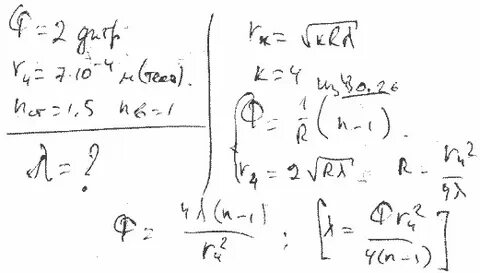 Φ = 2 дптр
r₄ = 7·10⁻⁴ м (темн).
nст = 1,5 nв = 1
λ = ?
rк = √кRλ
к = 4
из
Φ = 1/R (n-1).
r₄ = 2√Rλ R = r₄²/4λ
Φ = 4λ(n-1)/r₄² ; [λ = Φr₄²/4(n-1)]